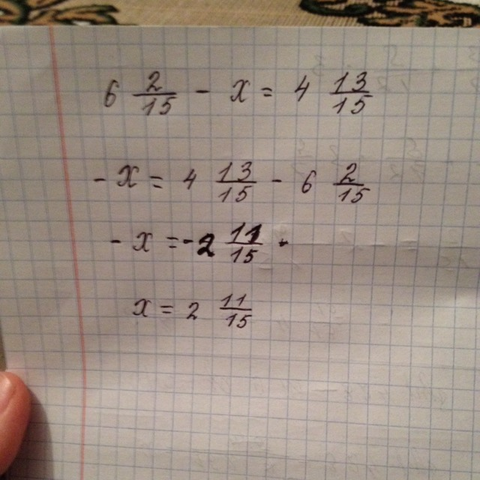 6 2/15 - x = 4 13/15
- x = 4 13/15 - 6 2/15
- x = -2 11/15
x = 2 11/15